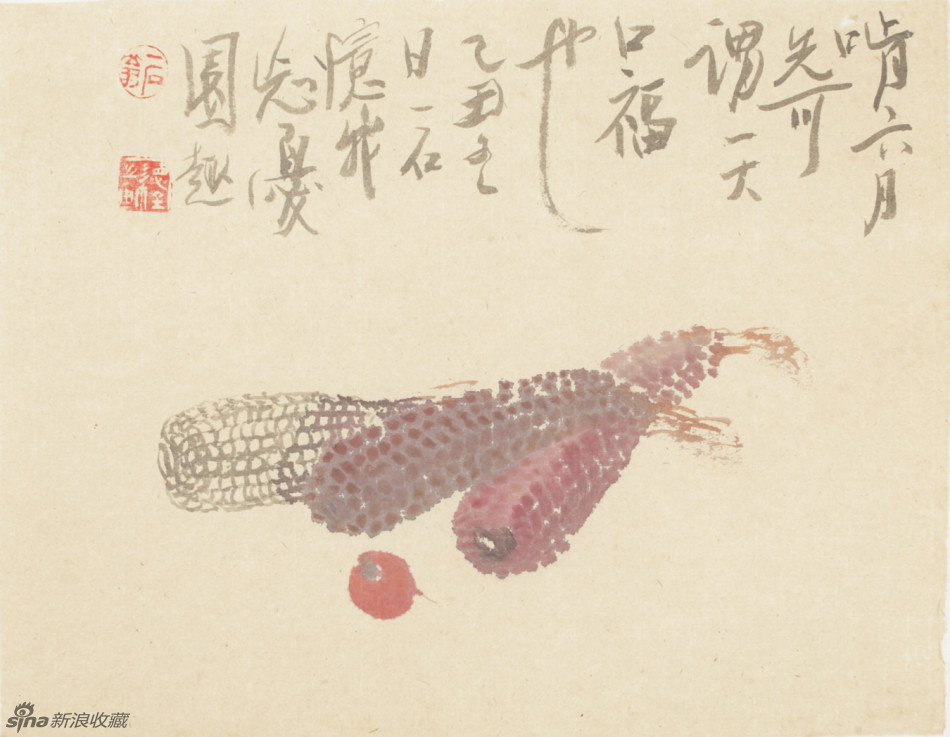 啃六月
先可
謂一大
口福
也
乙丑冬
日一石
憶
忘憂
園趣
一石翁
sina新浪收藏